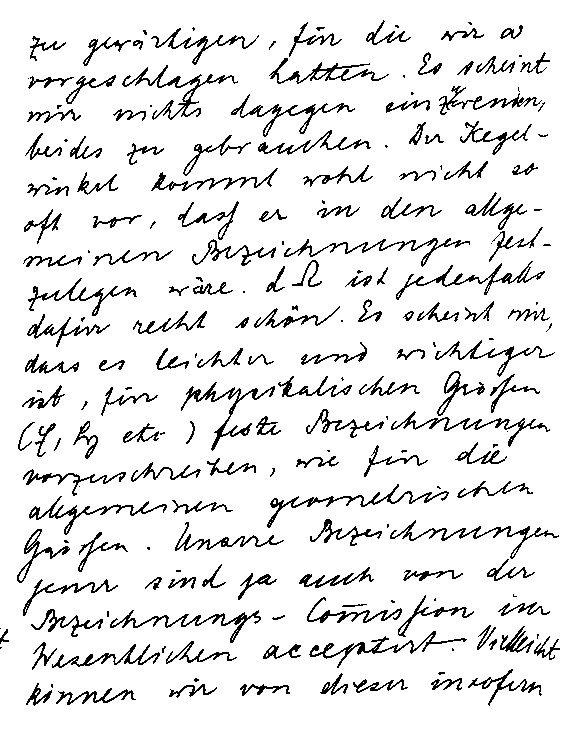 zu gewärtigen, für die wir ω
vorgeschlagen hatten. Es scheint
mir nichts dagegen einzuwenden,
beides zu gebrauchen. Der Kegel-
winkel kommt wohl nicht so
oft vor, dass er in den allge-
meinen Bezeichnungen fest-
zulegen wäre. dΩ ist jedenfalls
dafür recht schön. Es scheint mir,
dass es leichter und wichtiger
ist, für physikalischen Grössen
(E, H etc) feste Bezeichnungen
vorzuschreiben, wie für die
allgemeinen geometrischen
Grössen. Unsere Bezeichnungen
jener sind ja auch von der
Bezeichnungs-Com̄ission im
Wesentlichen acceptirt. Vielleicht
können wir von dieser insofern